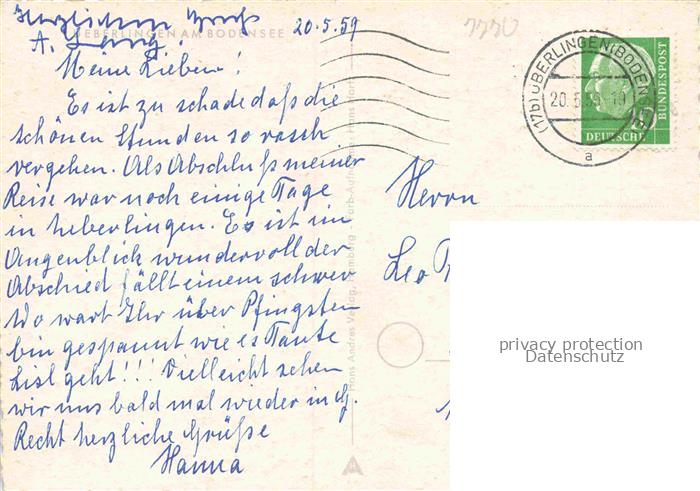 Herzlichen Gruß
A. Lang.
20.5.59
UEBERLINGEN AM BODENSEE
Meine Lieben!
Es ist zu schade daß die
schönen Stunden so rasch
vergehen. Als Abschluß meiner
Reise war noch einige Tage
in Ueberlingen. Es ist im
Augenblick wundervoll der
Abschied fällt einem schwer
Wo wart Ihr über Pfingsten
bin gespannt wie es Tante
Lisl geht!!! Vielleicht sehen
wir uns bald mal wieder in G.
Recht herzliche Grüße
Hanna
Hans Andres Verlag, Hamburg
7770
(17b) ÜBERLINGEN (BODENS
20.5.59-19
a
DEUTSCHE
BUNDESPOST
Herrn
Leo
privacy protection
Datenschutz